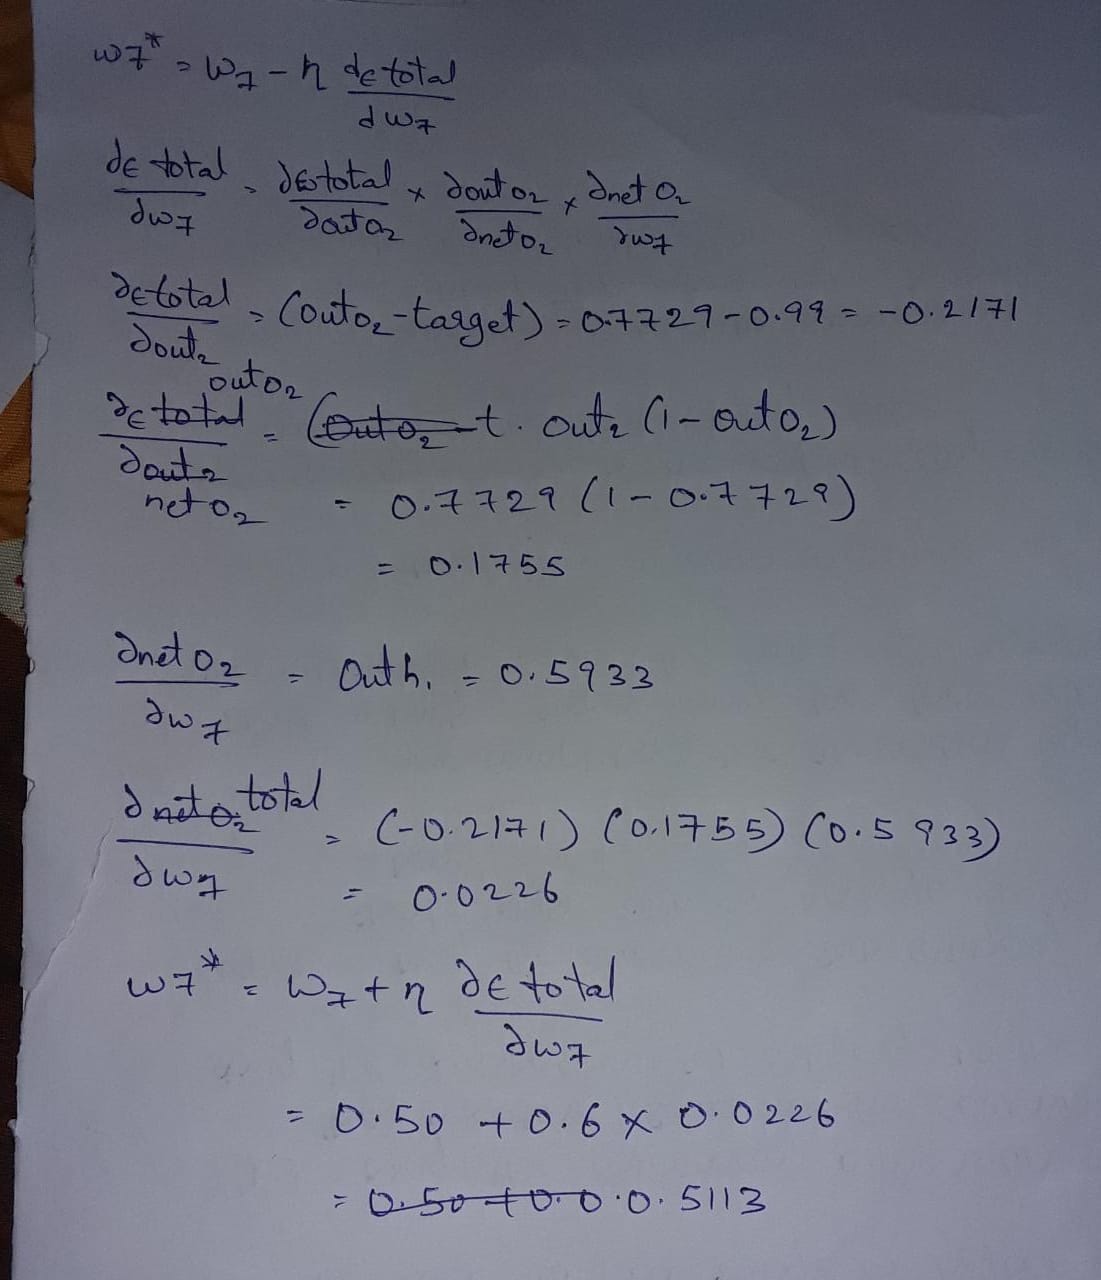 w7* = w7 - η dє total / dw7
dє total / dw7 = ∂є total / ∂outo2 × ∂out o2 / ∂net o2 × ∂net o2 / ∂w7
∂є total / ∂out2 = (outo2 - target) = 0.7729 - 0.99 = -0.2171
out o2
∂є total / ∂out2 = (outo2 - t. out2 (1 - outo2)
net o2 = 0.7729 (1 - 0.7729)
= 0.1755
∂net o2 / ∂w7 = Outh1 = 0.5933
∂ neto2 total / ∂w7 = (-0.2171) (0.1755) (0.5933)
= 0.0226
w7* = w7 + η ∂є total / ∂w7
= 0.50 + 0.6 × 0.0226
= 0.50 + 0.0 .0.5113